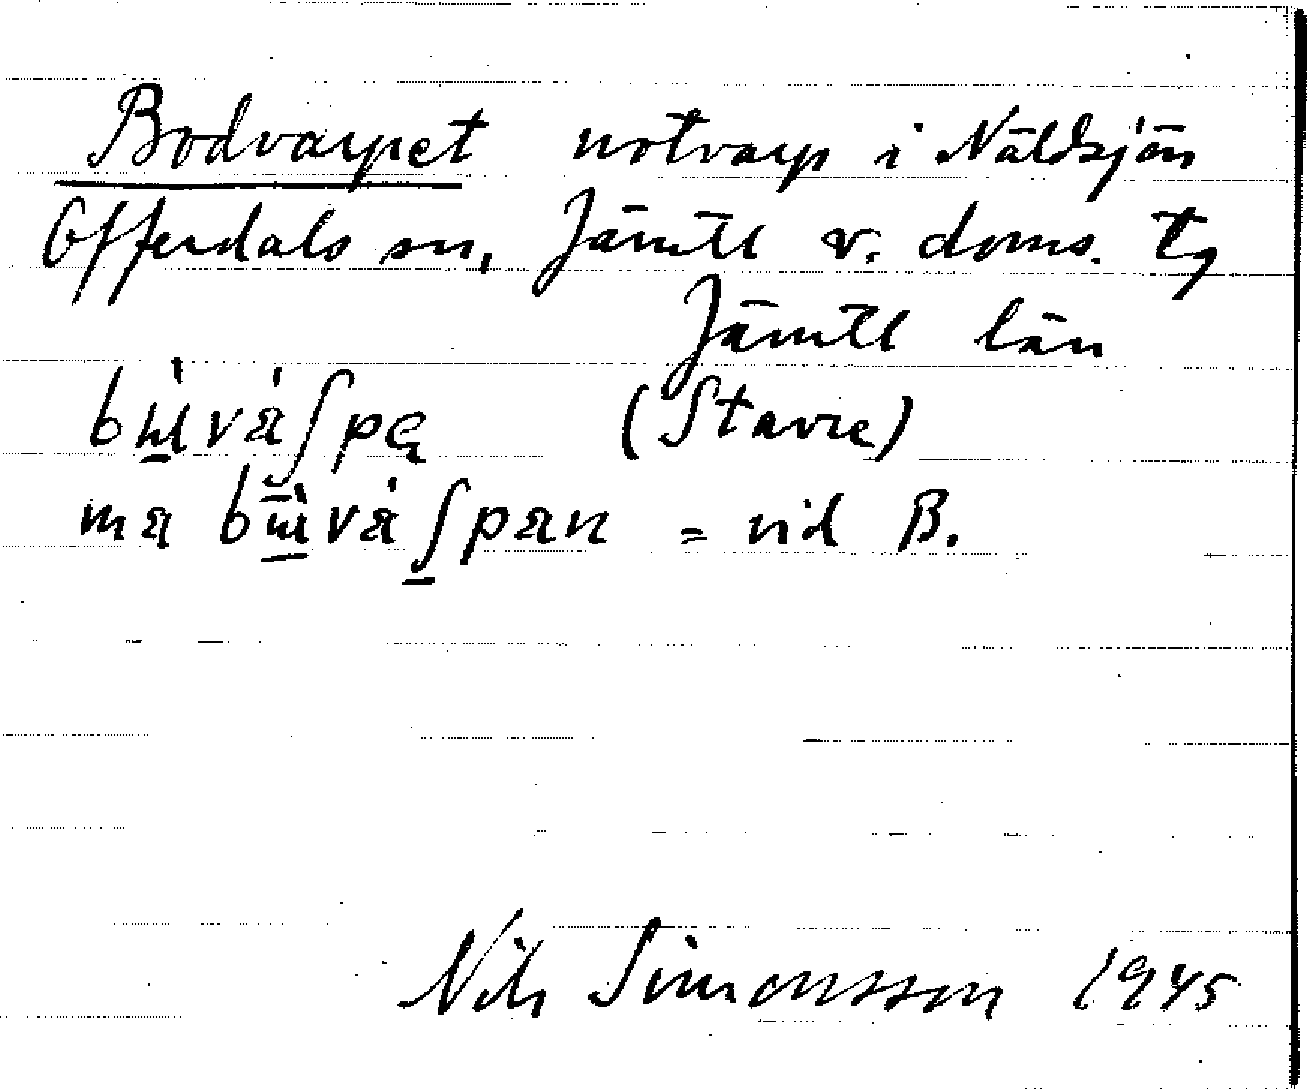 Bodvarpet notvarp i Näldsjön
Offerdals sn, Jämtl v. doms. tg
Jämtl län
(Stavre)
ma = vid B.
Nils Simonsson 1945